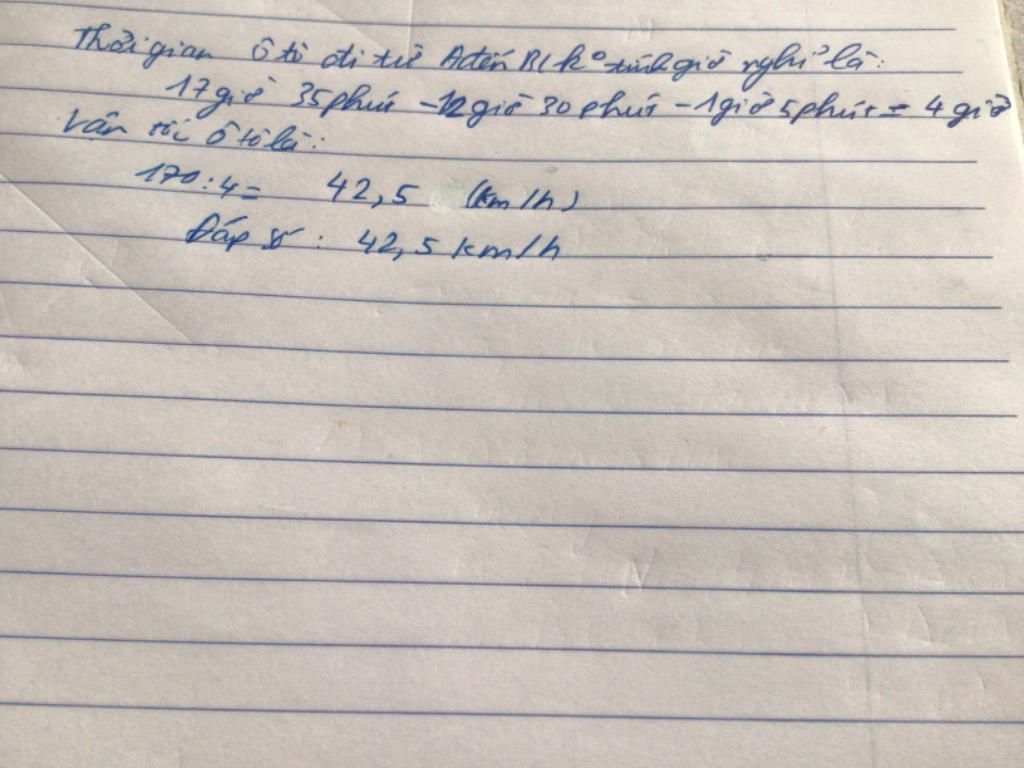 Thời gian ô tô đi từ A đến B (k° tính giờ nghỉ là:
17 giờ 35 phút - 12 giờ 30 phút - 1 giờ 5 phút = 4 giờ
Vân tốc ô tô là:
170 : 4 = 42,5 (km/h)
Đáp số : 42,5 km/h